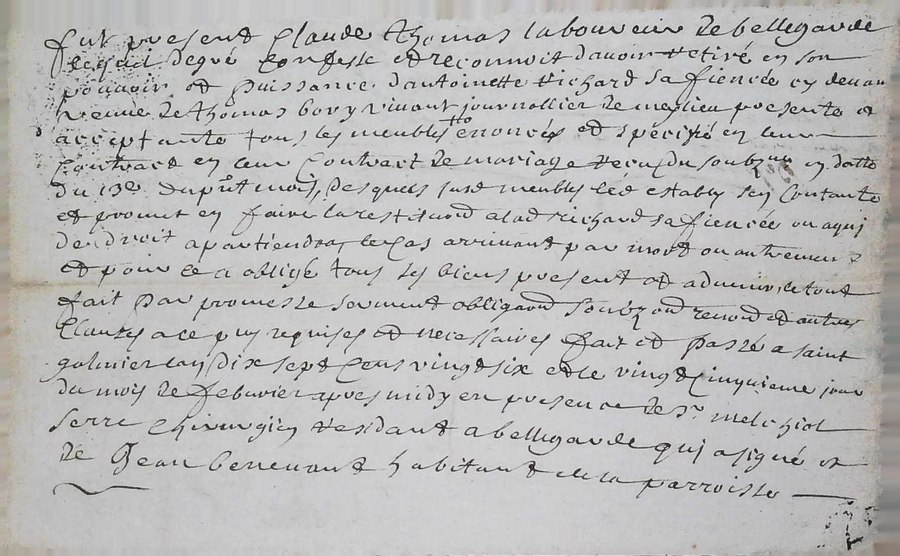 fut present Claude thomas laboureur de bellegarde
lequel de gré Confesse et reconnoit d'avoir retiré en son
pouvoir et puissance d'antoinette richard sa fiencée en devan
veuve de thomas bory vivant journallier de meylieu presente et
acceptante tous les meubles enoncés et spéciffié en leur
Contract en leur Contract de mariage receu du soubzné en datte
du 13e du pnt mois, desquels susd meubles led establi s'en Contante
et promet en faire la restituond a lad richard sa fiencée ou a qui
de droit apartiendra le Cas arrivant par mort ou autremen
et pour ce a obligé tous ses biens present et advenir, le tout
fait par promesse serment obligaond soubzond renond et autres
Clauzes a ce puy requises et necessaires fait et passé a saint
galmier lan dix sept Cens vingt six et le vingt Cinquieme jour
du mois de feburier apres midy en presence de sr melchiol
serre Chirurgien residant a bellegarde qui a signé et
de Jean benevant habitant de la parroisse